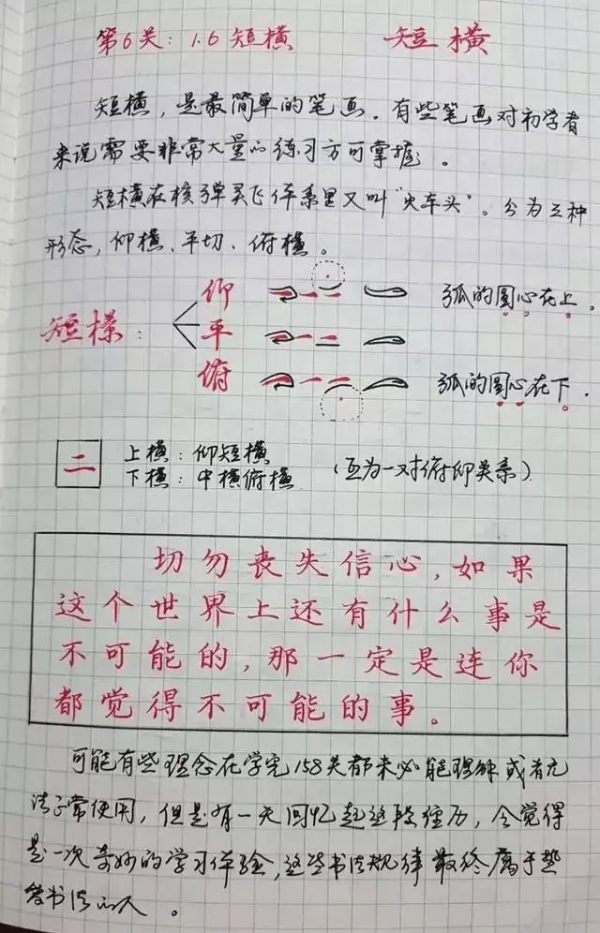 第6关：1.6短横 短横
短横，是最简单的笔画。有些笔画对初学者
来说需要非常大量的练习方可掌握。
短横在核弹灵飞体系里又叫“火车头”。分为三种
形态，仰横、平切、俯横。
仰 弧的圆心在上。
短横： 平
俯 弧的圆心在下.
二 上横：仰短横
下横：中横俯横 （互为一对俯仰关系）
切勿丧失信心，如果
这个世界上还有什么事是
不可能的，那一定是连你
都觉得不可能的事。
可能有些理念在学完158关都未必能理解或者无
法正常使用，但是有一天回忆起这段经历，会觉得
是一次奇妙的学习体验，这些书法规律最终属于热
爱书法的人。